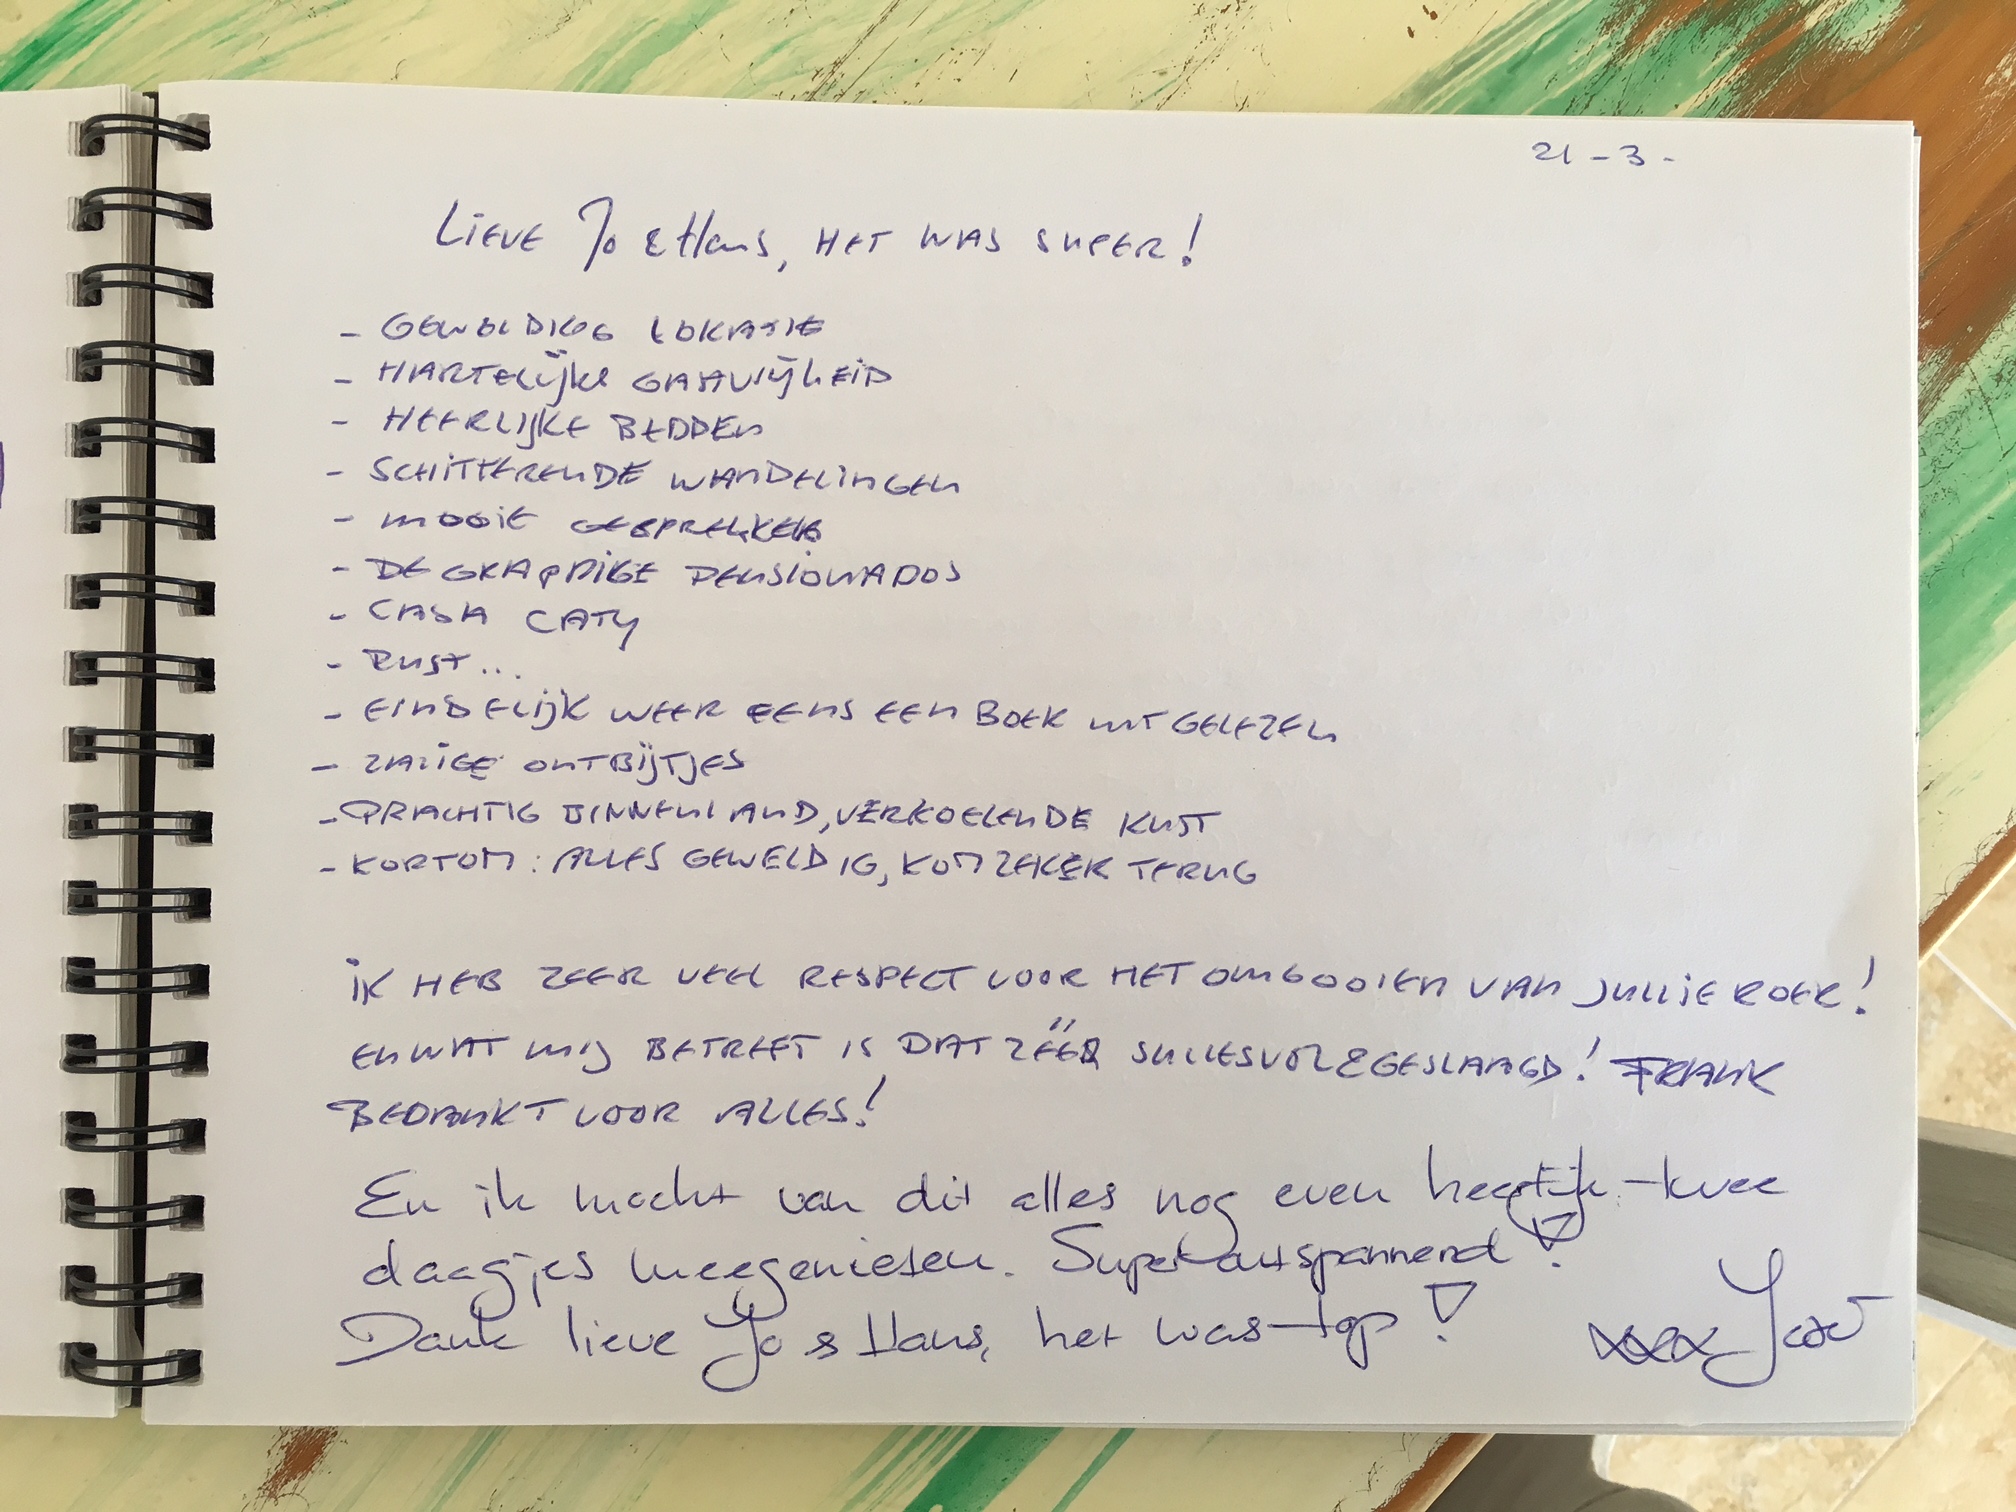 21-3-
LIEVE Jo & Hans, HET WAS SUPER!
- GEWELDIGE LOKATIE
- HARTELIJKE GASTVRIJHEID
- HEERLIJKE BEDDEN
- SCHITTERENDE WANDELINGEN
- MOOIE GESPREKKEN
- DE GRAPPIGE PENSIONADOS
- CASA CATY
- RUST...
- EINDELIJK WEER EENS EEN BOEK UITGELEZEN
- ZALIGE ONTBIJTJES
- PRACHTIG BINNENLAND, VERKOELENDE KUST
- KORTOM: ALLES GEWELDIG, KOM ZEKER TERUG
IK HEB ZEER VEEL RESPECT VOOR HET OMGOOIEN VAN JULLIE ROER!
EN WAT MIJ BETREFT IS DAT ZÉÉR SUCCESVOL GESLAAGD! FRANK
BEDANKT VOOR ALLES!
En ik mocht van dit alles nog even heerlijk twee
daagjes meegenieten. Super ontspannend!
Dank lieve Jo & Hans, het was top!
xxx